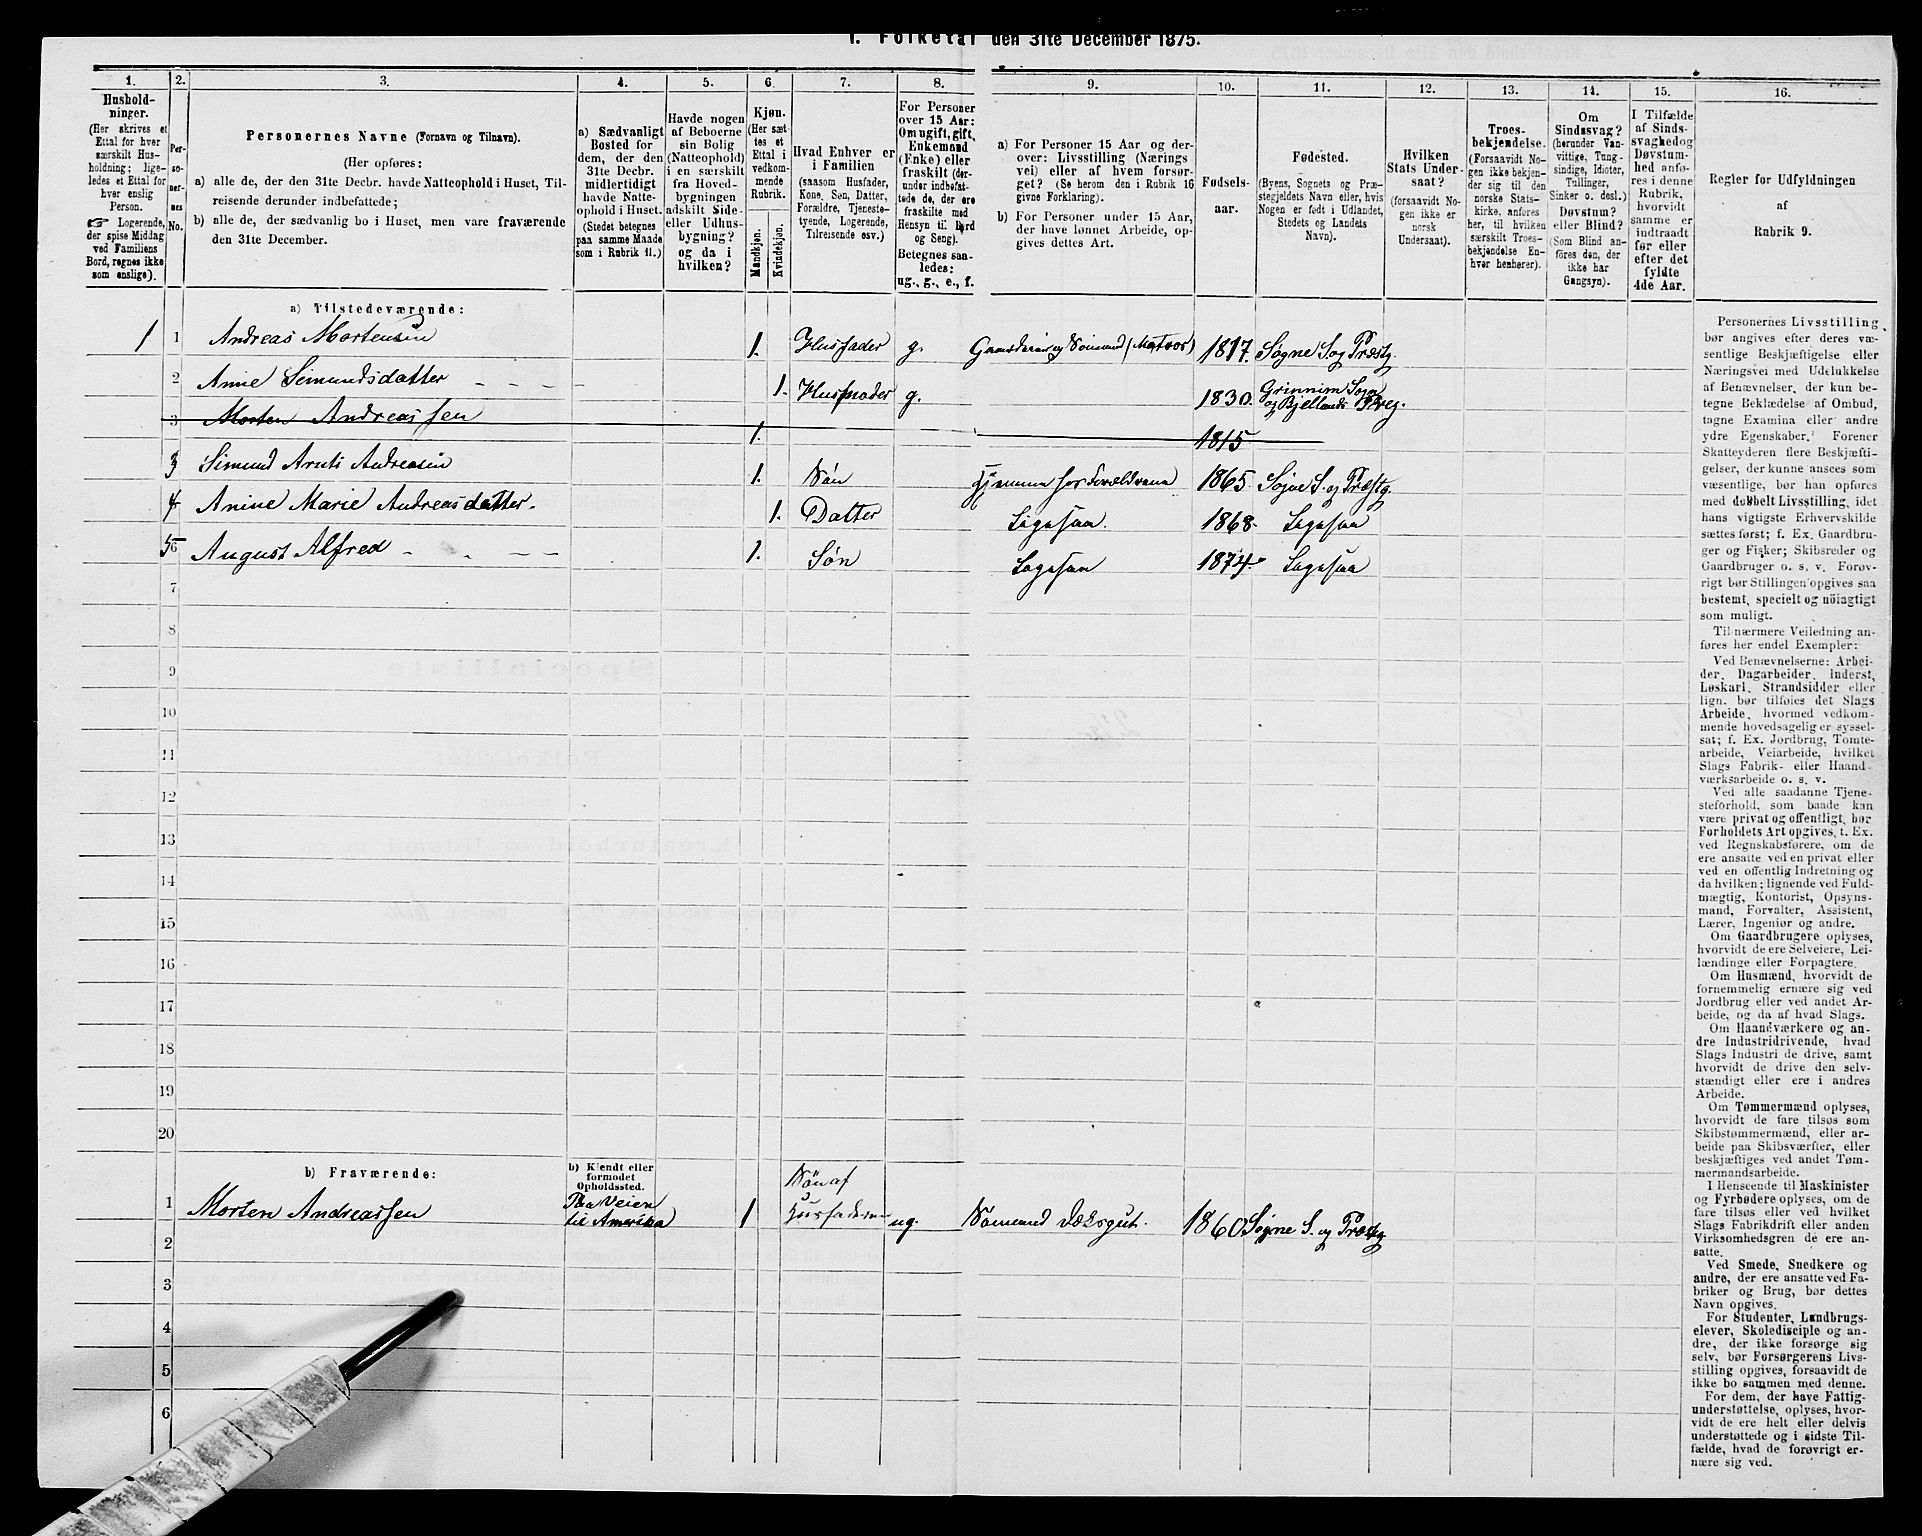 1. Folketal den 31te December 1875.
1. 2. 3. 4. 5. 6. 7. 8. 9. 10. 11. 12. 13. 14. 15. 16.
Hushold-
ninger.
(Her skrives et
Ettal for hver
særskilt Hus-
holdning; lige-
ledes et Ettal for
hver enslig
Person.
☞ Logerende,
der spise Middag
ved Familiens
Bord, regnes ikke
som enslige).
Per-
so-
ner-
nes
No.
Personernes Navne (Fornavn og Tilnavn).
(Her opføres:
a) alle de, der den 31te Decbr. havde Natteophold i Huset, Til-
reisende derunder indbefattede;
b) alle de, der sædvanlig bo i Huset, men vare fraværende
den 31te December.
a) Sædvanligt
Bosted for
dem, der den
31te Decbr.
midlertidigt
havde Natte-
ophold i Huset.
(Stedet betegnes
paa samme Maade
som i Rubrik 11.)
Havde nogen
af Beboerne
sin Bolig
(Natteophold)
i en særskilt
fra Hoved-
bygningen
adskilt Side-
eller Udhus-
bygning?
og da i
hvilken?
Kjøn.
(Her sæt-
tes et
Ettal i
vedkom-
mende
Rubrik.
Mandkjøn.
Kvindekjøn.
Hvad Enhver er
i Familien
(saasom Husfader,
Kone, Søn, Datter,
Forældre, Tjeneste-
tyende, Logerende,
Tilreisende osv.)
For Personer
over 15 Aar:
Om ugift, gift,
Enkemand
(Enke) eller
fraskilt (der-
under indbefat-
tede de, der ere
fraskilte med
Hensyn til Bord
og Seng).
Betegnes saa-
ledes:
ug., g., e., f.
a) For Personer 15 Aar og der-
over: Livsstilling (Nærings
vei) eller af hvem forsør-
get? (Se herom den i Rubrik 16
givne Forklaring).
b) For Personer under 15 Aar,
der have lønnet Arbeide, op-
gives dettes Art.
Fødsels-
aar.
Fødested.
(Byens, Sognets og Præ-
stegjeldets Navn eller, hvis
Nogen er født i Udlandet,
Stedets og Landets
Navn).
Hvilken
Stats Under-
saat?
(forsaavidt No-
gen ikke er
norsk
Undersaat).
Troes-
bekjendelse.
(Forsaavidt No-
gen ikke bekjen-
der sig til den
norske Stats-
kirke, anføres
her, til hvilken
særskilt Troes-
bekjendelse En-
hver henhører).
Om
Sindssvag?
(herunder Van-
vittige, Tung-
sindige, Idioter,
Tullinger,
Sinker o. desl.)
Døvstum?
eller Blind?
(Som Blind an-
føres den, der
ikke har
Gangsyn).
I Tilfælde
af Sinds-
svaghed og
Døvstum-
hed anfø-
res i denne
Rubrik,
hvorvidt
samme er
indtraadt
før eller
efter det
fyldte
4de Aar.
Regler for Udfyldningen
af
Rubrik 9.
a) Tilstedeværende:
1 1 Andreas Mortensen 1. Husfader g. Gaardbruger og Sømand (Matros) 1817. Søgne S. og Præstg.
2 Anne Simundsdatter - - - - 1. Husmoder g. 1830. Grinnim Sogn og Bjellands Præg.
3 Morten Andreassen 1. 1815
3 Simund Arnts Andreasen 1. Søn Hjemme hos Forældrene 1865. Søgne S. og Præstg.
4 Anine Marie Andreasdatter. 1. Datter Ligesaa. 1868. Ligesaa
5 6 August Alfred - - - - 1. Søn Ligesaa 1874. Ligesaa
7
8
9
10
11
12
13
14
15
16
17
18
19
20
b) Fraværende:
b) Kjendt eller
formodet
Opholdssted.
1 Morten Andreassen Paa Veien til Amerika 1 Søn af Husfaderen ug. Sømand Dæksgut. 1860 Søgne S. og Præstg
2
3
4
5
6
Personernes Livsstilling
bør angives efter deres væ-
sentlige Beskjæftigelse eller
Næringsvei med Udelukkelse
af Benævnelser, der kun be-
tegne Beklædelse af Ombud,
tagne Examina eller andre
ydre Egenskaber. Forener
Skatteyderen flere Beskjæfti-
gelser, der kunne ansees som
væsentlige, bør han opføres
med dobbelt Livsstilling, idet
hans vigtigste Erhvervskilde
sættes først; f. Ex. Gaardbru-
ger og Fisker; Skibsreder og
Gaardbruger o. s. v. Forøv-
rigt bør Stillingen opgives saa
bestemt, specielt og nöiagtigt
som muligt.
Til nærmere Veiledning an-
føres her endel Exempler:
Ved Benævnelserne: Arbei-
der, Dagarbeider, Inderst,
Løskarl, Strandsidder eller
lign. bør tilføies det Slags
Arbeide, hvormed vedkom-
mende hovedsagelig er syssel-
sat; f. Ex. Jordbrug, Tomte-
arbeide, Veiarbeide, hvilket
Slags Fabrik- eller Haand-
værksarbeide o. s. v.
Ved alle saadanne Tjene-
steforhold, som baade kan
være privat og offentligt, bør
Forholdets Art opgives, t. Ex.
ved Regnskabsførere, om de
ere ansatte ved en privat eller
ved en offentlig Indretning og
da hvilken; lignende ved Fuld-
mægtig, Kontorist, Opsyns-
mand, Forvalter, Assistent,
Lærer, Ingeniør og andre.
Om Gaardbrugere oplyses,
hvorvidt de ere Selveiere, Lei-
lændinge eller Forpagtere.
Om Husmænd, hvorvidt de
fornemmelig ernære sig ved
Jordbrug eller ved andet Ar-
beide, og da af hvad Slags.
Om Haandværkere og an-
dre Industridrivende, hvad
Slags Industri de drive, samt
hvorvidt de drive den selv-
stændigt eller ere i andres
Arbeide.
Om Tømmermænd oplyses,
hvorvidt de fare tilsøs som
Skibstømmermænd, eller ar-
beide paa Skibsværfter, eller
beskjæftiges ved andet Tøm-
mermandsarbeide.
I Henseende til Maskinister
og Fyrbødere oplyses, om de
fare tilsøs eller ved hvilket
Slags Fabrikdrift eller anden
Virksomhedsgren de ere an-
satte.
Ved Smede, Snedkere og
andre, der ere ansatte ved Fa-
briker og Brug, bør dettes
Navn opgives.
For Studenter, Landbrugs-
elever, Skoledisciple og an-
dre, der ikke forsørge sig
selv, bør Forsørgerens Livs-
stilling opgives, forsaavidt de
ikke bo sammen med denne.
For dem, der have Fattig-
understøttelse, oplyses, hvor-
vidt de ere helt eller delvis
understøttede og i sidste Til-
fælde, hvad de forøvrigt er-
nære sig ved.